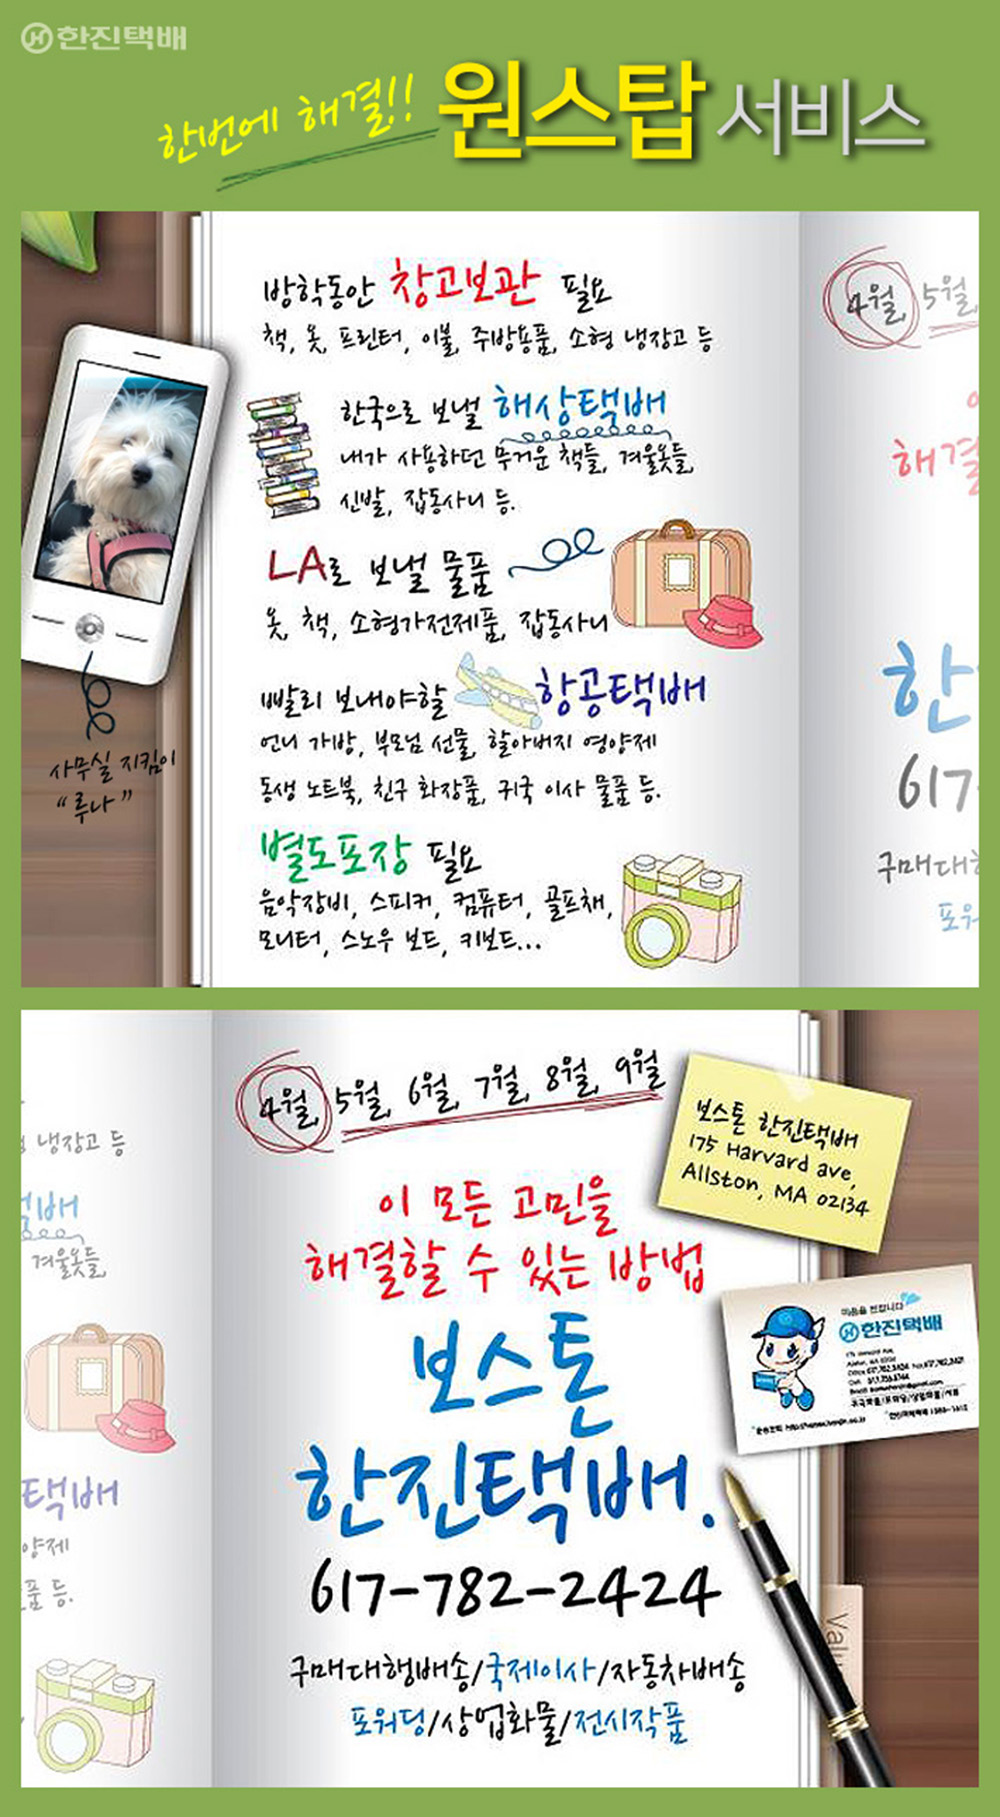 한진택배
한번에 해결!! 원스탑 서비스
방학동안 창고보관 필요
책, 옷, 프린터, 이불, 주방용품, 소형 냉장고 등
한국으로 보낼 해상택배
내가 사용하던 무거운 책들, 겨울옷들,
신발, 잡동사니 등.
LA로 보낼 물품
옷, 책, 소형가전제품, 잡동사니
빨리 보내야할 항공택배
언니 가방, 부모님 선물, 할아버지 영양제
동생 노트북, 친구 화장품, 귀국 이사 물품 등.
별도포장 필요
음악장비, 스피커, 컴퓨터, 골프채,
모니터, 스노우 보드, 키보드...
사무실 지킴이
"루나"
4월, 5월,
해결
한
617
구매대
포워
냉장고 등
택배
겨울옷들,
택배
양제
품 등.
4월, 5월, 6월, 7월, 8월, 9월
이 모든 고민을
해결할 수 있는 방법
보스톤
한진택배.
617-782-2424
구매대행배송/국제이사/자동차배송
포워딩/상업화물/전시작품
보스톤 한진택배
175 Harvard ave,
Allston, MA 02134
마음을 전합니다
한진택배
175 Harvard Ave,
Allston, MA 02134
Office 617.782.2424 Fax 617.782.2421